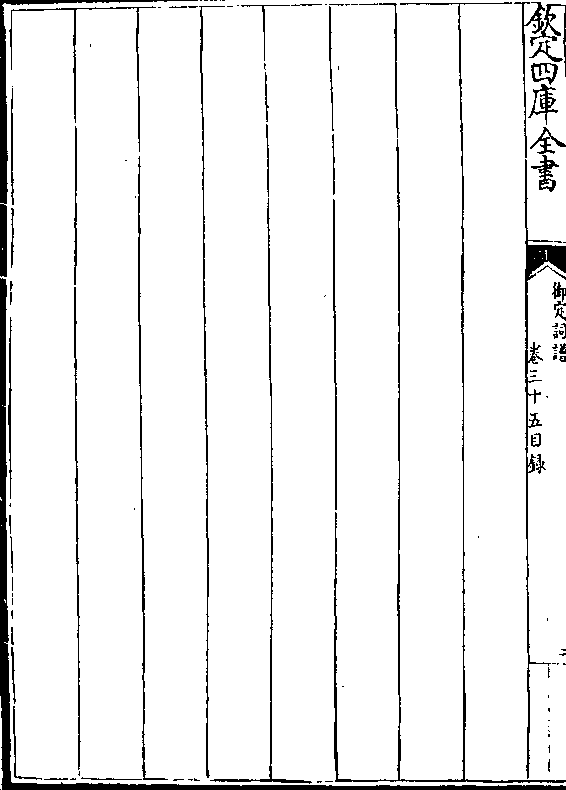 欽定四庫全書
御定詞譜
卷三十五目録